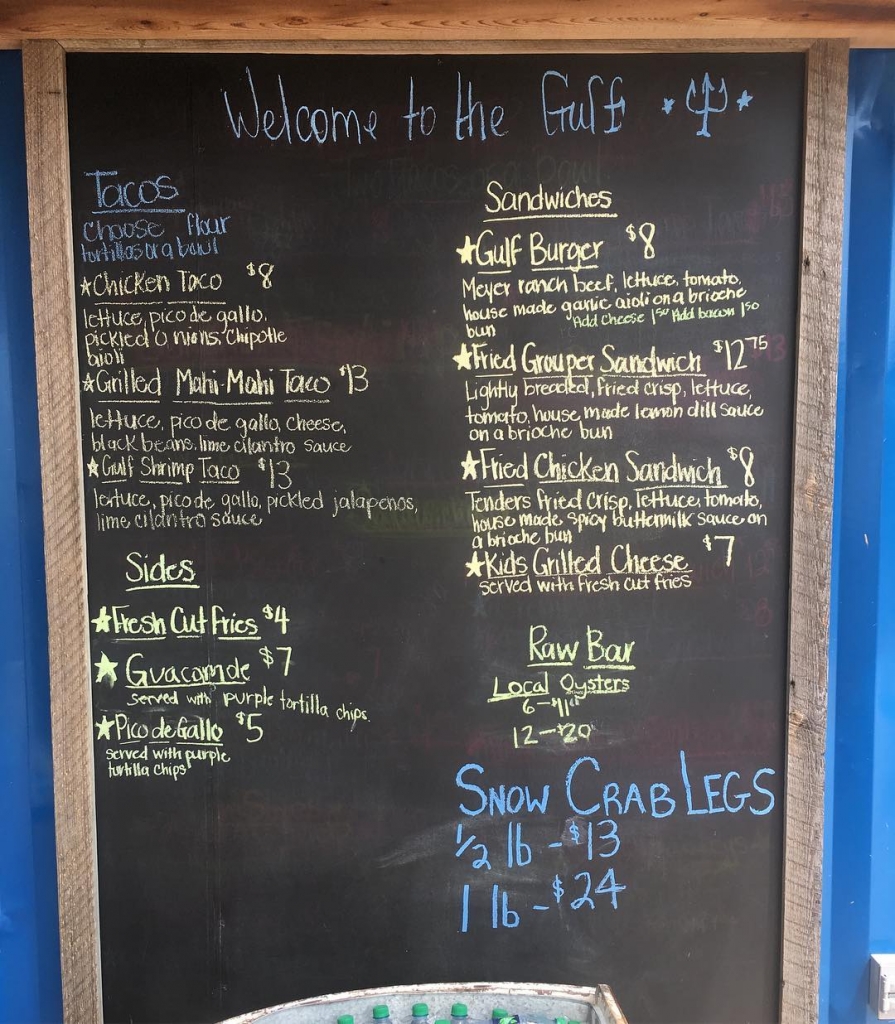 Welcome to the Gulf
Tacos
choose flour
tortillas or a bowl
Chicken Taco $8
lettuce, pico de gallo,
pickled onions, chipotle
aioli
Grilled Mahi-Mahi Taco $13
lettuce, pico de gallo, cheese,
black beans, lime cilantro sauce
Gulf Shrimp Taco $13
lettuce, pico de gallo, pickled jalapenos,
lime cilantro sauce
Sides
Fresh Cut Fries $4
Guacamole $7
served with purple tortilla chips.
Pico de Gallo $5
served with purple
tortilla chips
Sandwiches
Gulf Burger $8
Meyer ranch beef, lettuce, tomato,
house made garlic aioli on a brioche
bun Add cheese 1.50 Add bacon 1.50
Fried Grouper Sandwich $12.75
Lightly breaded, fried crisp, lettuce,
tomato, house made lemon dill sauce
on a brioche bun
Fried Chicken Sandwich $8
Tenders fried crisp, lettuce, tomato,
house made spicy buttermilk sauce on
a brioche bun
Kids Grilled Cheese $7
served with fresh cut fries
Raw Bar
Local Oysters
6 - $11
12 - $20
SNOW CRAB LEGS
1/2 lb - $13
1 lb - $24